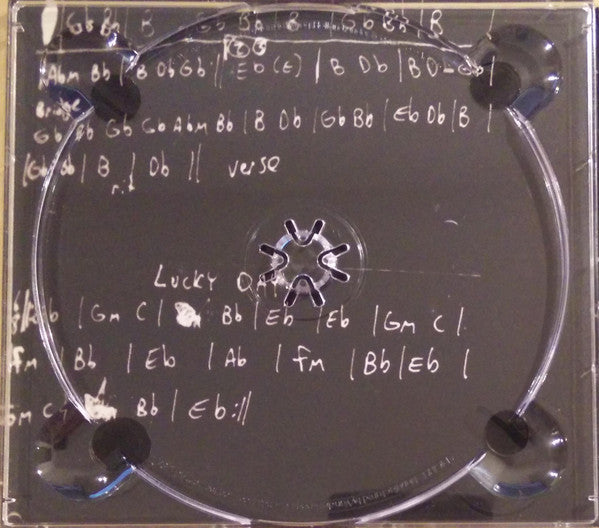 | Gb Bb | B Gb Bb | B | Gb Bb | B |
|Abm Bb | B Db Gb || Eb (E) | B Db | B D-Gb |
Bridge
Gb Bb Gb Gb Abm Bb | B Db | Gb Bb | Eb Db | B |
|Gb Bb | B | Db || verse
rit
LUCKY DAY
| Gm C | Bb | Eb | Eb | Gm C |
Fm | Bb | Eb | Ab | Fm | Bb | Eb |
Gm C Bb | Eb :||